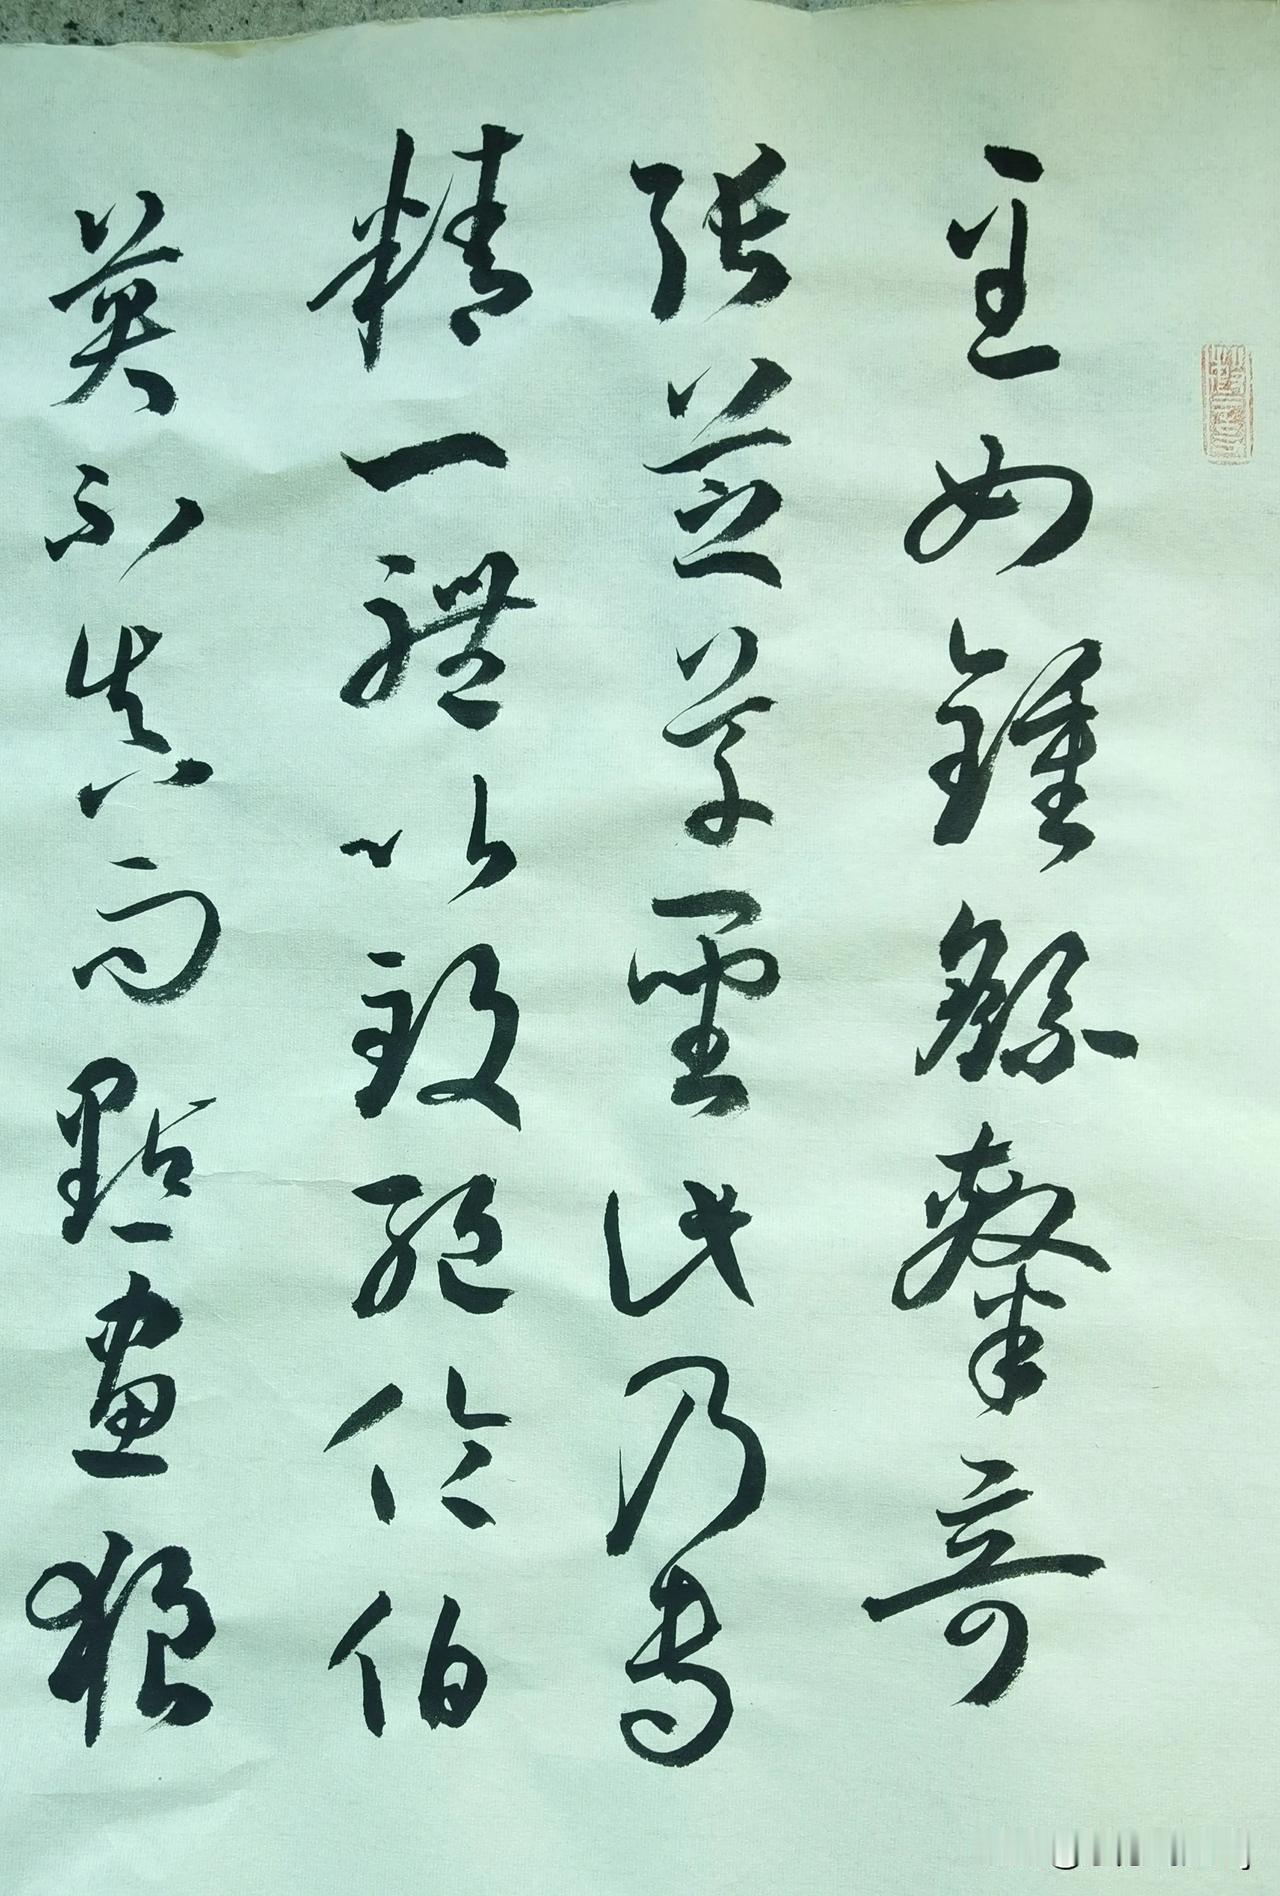 至如鍾繇隸奇
張芝草聖此乃專
精一體以致絕倫伯
英不真而點畫狼